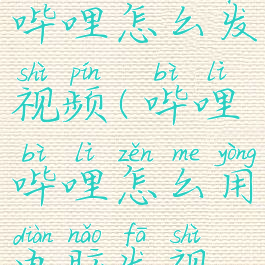 哔哩怎么发
shì pín bì li
视频(哔哩
bì li zěn me yòng
哔哩怎么用
diàn nǎo fā shì
电脑发视